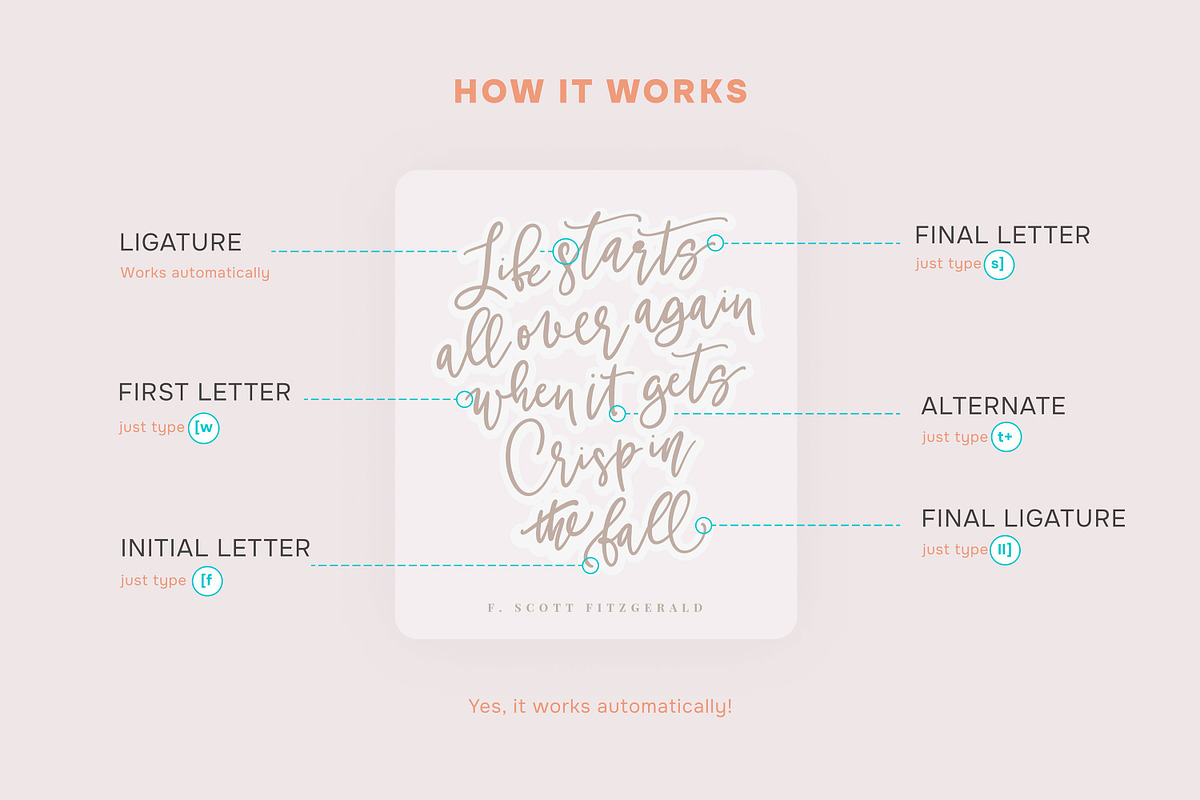 HOW IT WORKS
LIGATURE
Works automatically
FIRST LETTER
just type [w
INITIAL LETTER
just type [f
Life starts
all over again
when it gets
Crisp in
the fall
F. SCOTT FITZGERALD
FINAL LETTER
just type s]
ALTERNATE
just type t+
FINAL LIGATURE
just type ll]
Yes, it works automatically!